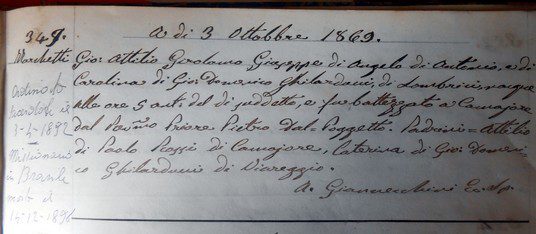 349.
A dì 3 Ottobre 1869.
Marchetti Gio: Attilio Gerolamo Giuseppe di Angelo di Antonio, e di
Carolina di Gio: Domenico Ghilarducci, di Lombrici, nacque
alle ore 5 ant. del dì suddetto, e fu battezzato a Camajore
dal Priore Pietro Dal-Poggetto. Padrini = Attilio
di Paolo Pezzi di Camajore, Caterina di Gio: Domeni-
co Ghilarducci di Viareggio.
A. Giannecchini
Ordinato
sacerdote il
3-4-1892
Missionario
in Brasile
morto il
14-12-1896